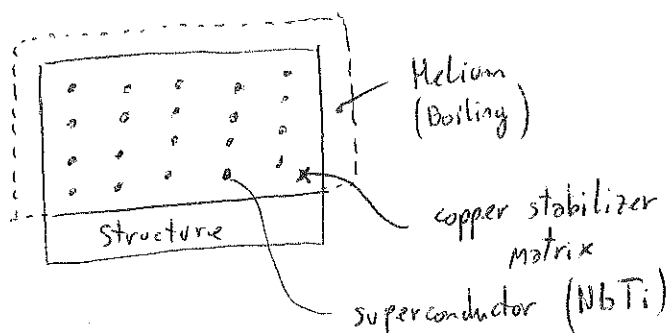 Helium
(Boiling)
structure
copper stabilizer
matrix
superconductor (NbTi)